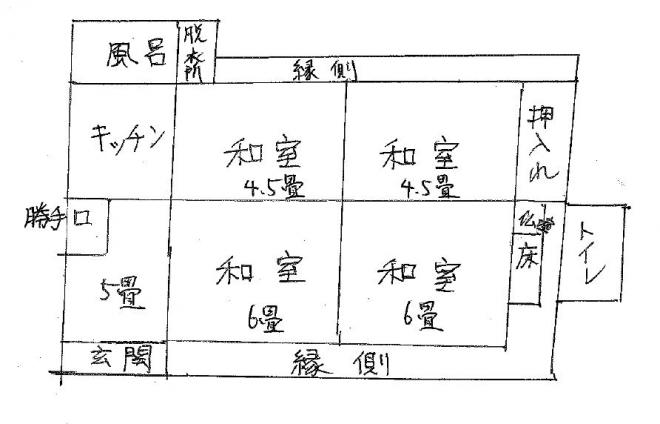 風呂
脱衣所
縁側
キッチン
和室
4.5畳
和室
4.5畳
押入れ
勝手口
仏壇
床
トイレ
5畳
和室
6畳
和室
6畳
玄関
縁側